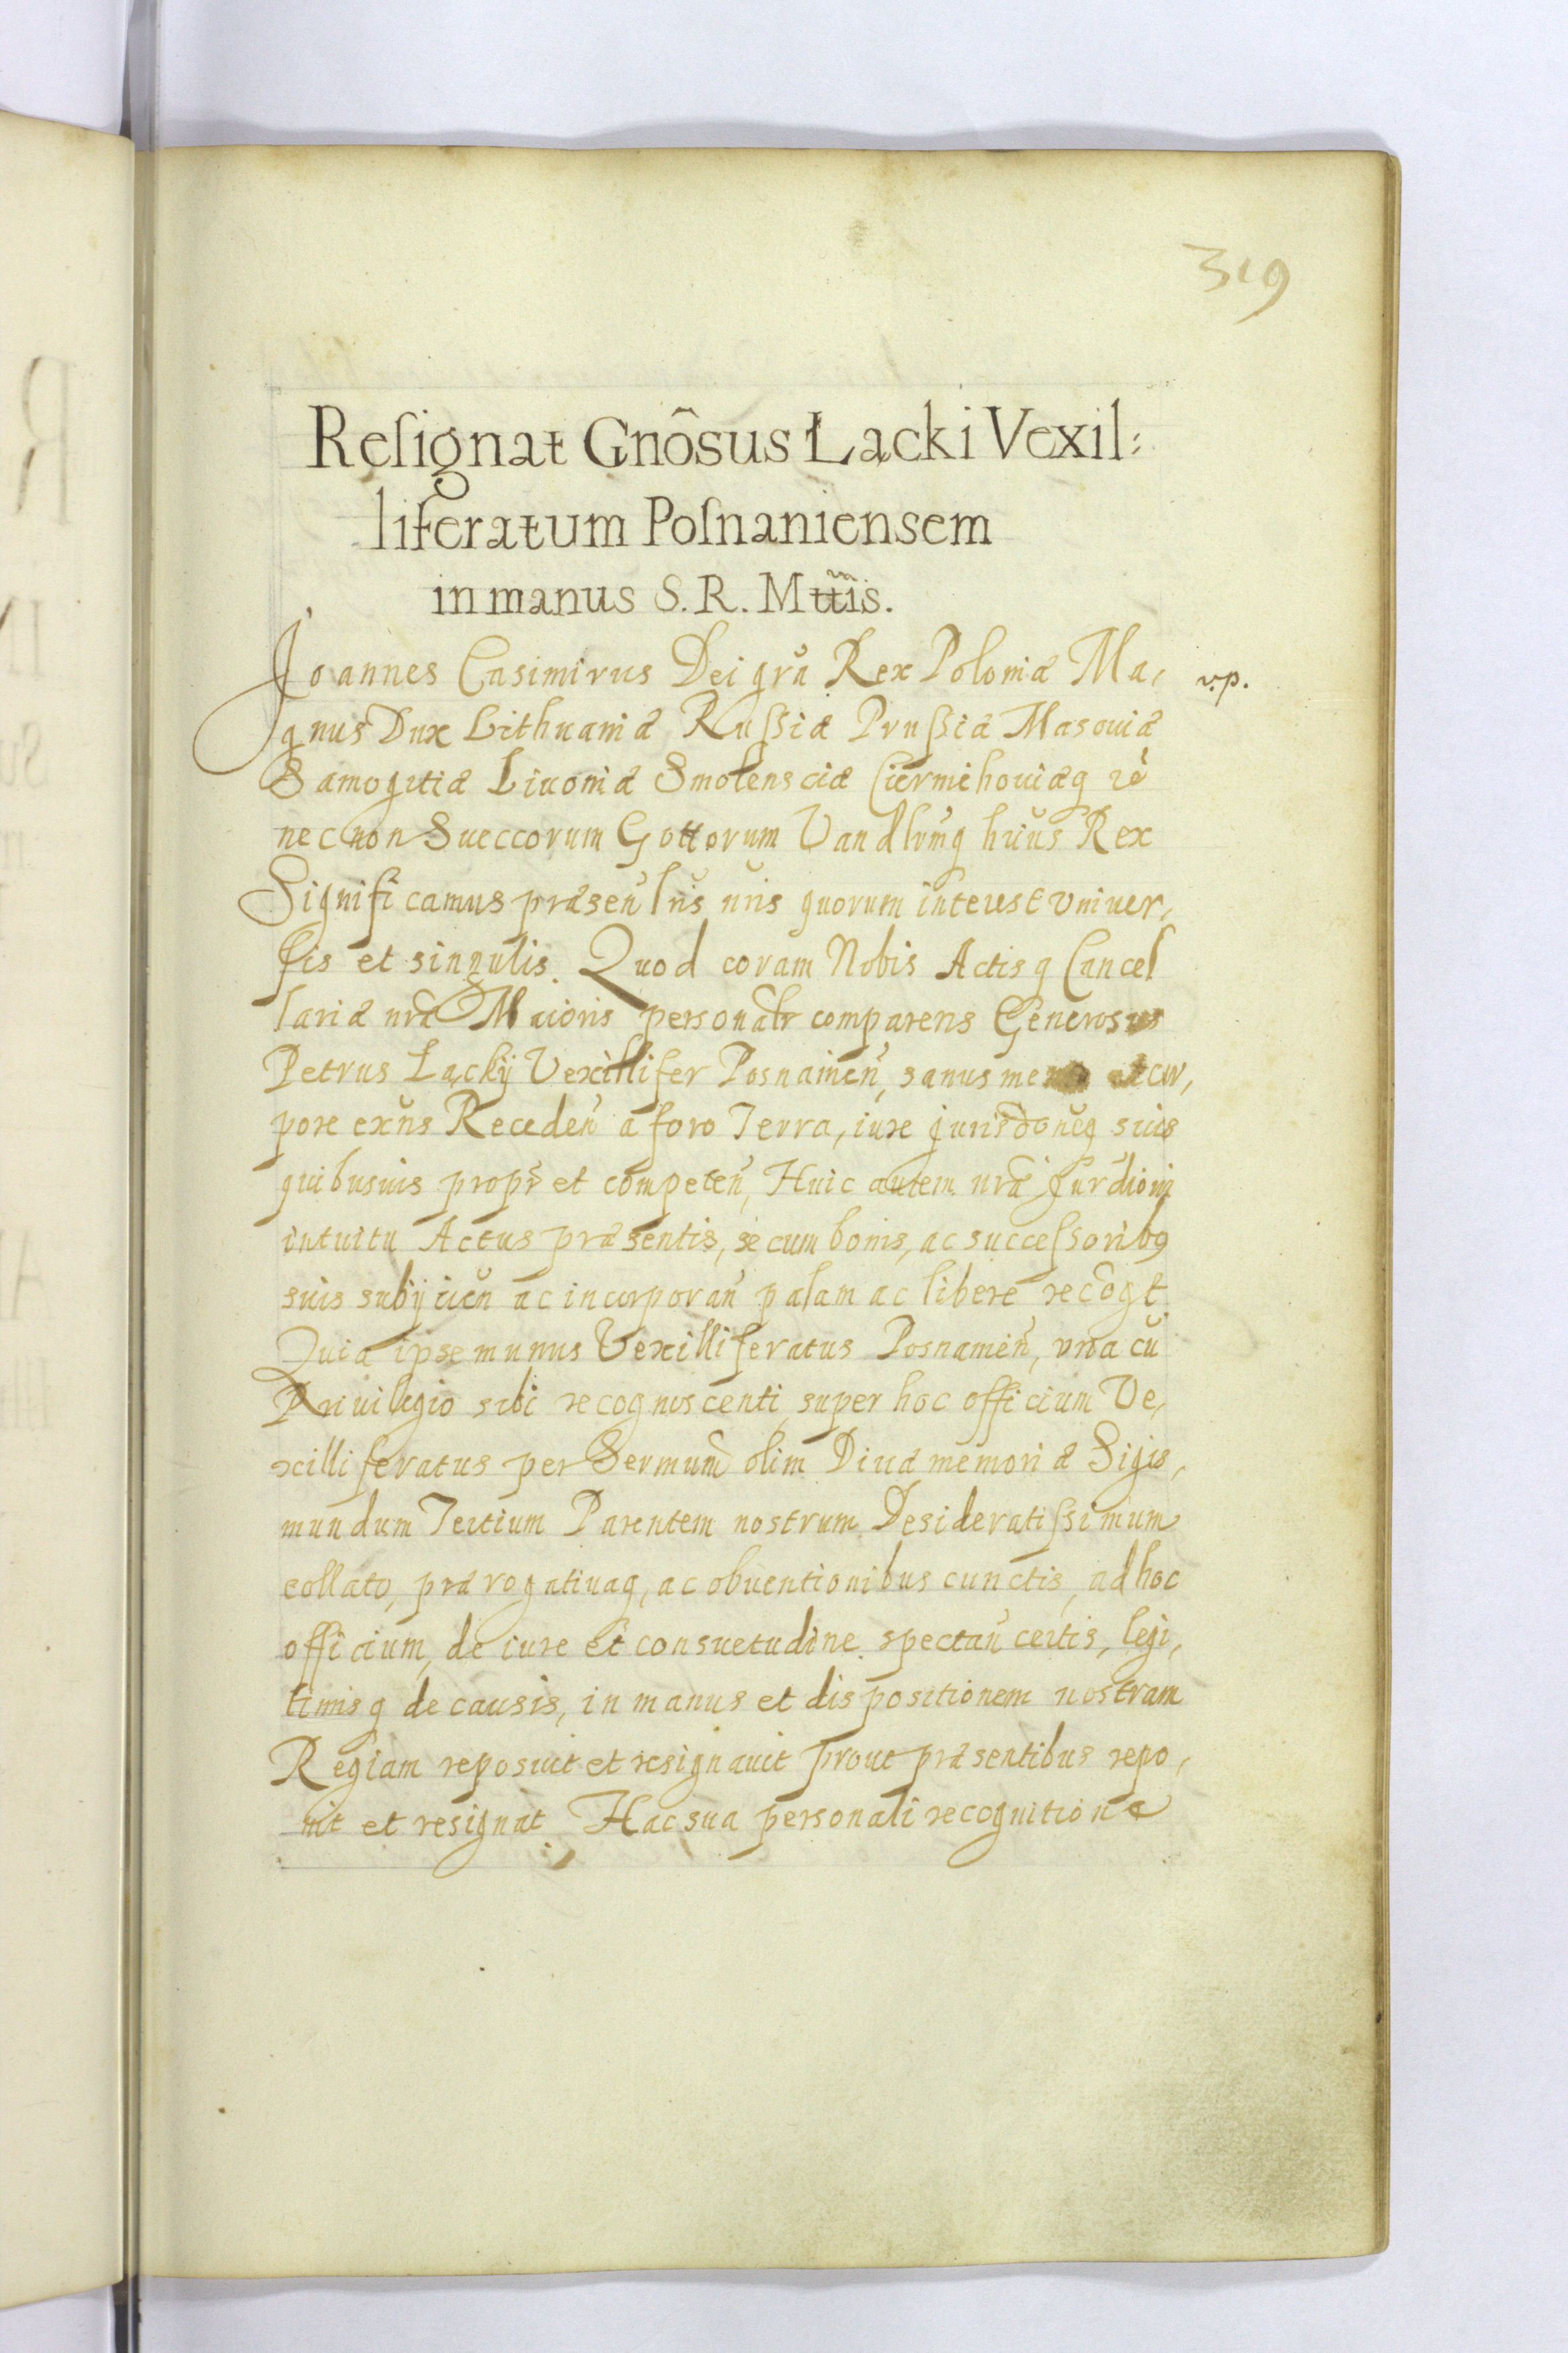 319
Reſignat Gnôsus Łacki Vexil:
liferatum Poſnaniensem
in manus S. R. Mttis.
Joannes Casimirus Dei grã Rex Poloniæ Ma,
v.p.
gnus Dux Lithuaniæ Ruſsiæ Pruſsiæ Masouiæ
Samogitiæ Liuoniæ Smolensciæ Czerniehouiæq
nec non Sueccorum Gottorum Vandlrmq hŭus Rex
Significamus præsen̆ lr̃is nr̃is quorum interest vniuer,
ſis et singulis. Quod coram Nobis Actisq Cancel
lariæ nr̃æ Maioris personalr comparens Generosus
Petrus Łącky Vexillifer Posnanien̆, sanus mente et cor,
pore exŭns Receden̆ a foro Terra, iure jurisdoneq suis
quibusuis propr̃ et competen̆, Huic autem nr̃æ Jurdioni
intuitu Actus præsentis, se cum bonis, ac succeſsoribq
suis subijcien̆ ac incorporan̆ palam ac libere recogt.
Quia ipse munus Vexilliferatus Posnanien̆, vna cŭ
Priuilegio sibi recognoscenti super hoc officium Ve,
xilliferatus per Sermum olim Diuæ memoriæ Sigis,
mundum Tertium Parentem nostrum Desideratiſsimum
collato, prærogatiuaq, ac obuentionibus cunctis, ad hoc
officium, de iure et consuetudine spectan̆ certis, legi,
timisq de causis, in manus et dispositionem nostram
Regiam reposuit et resignauit prout præsentibus repo,
nit et resignat. Hac sua personali recognitione